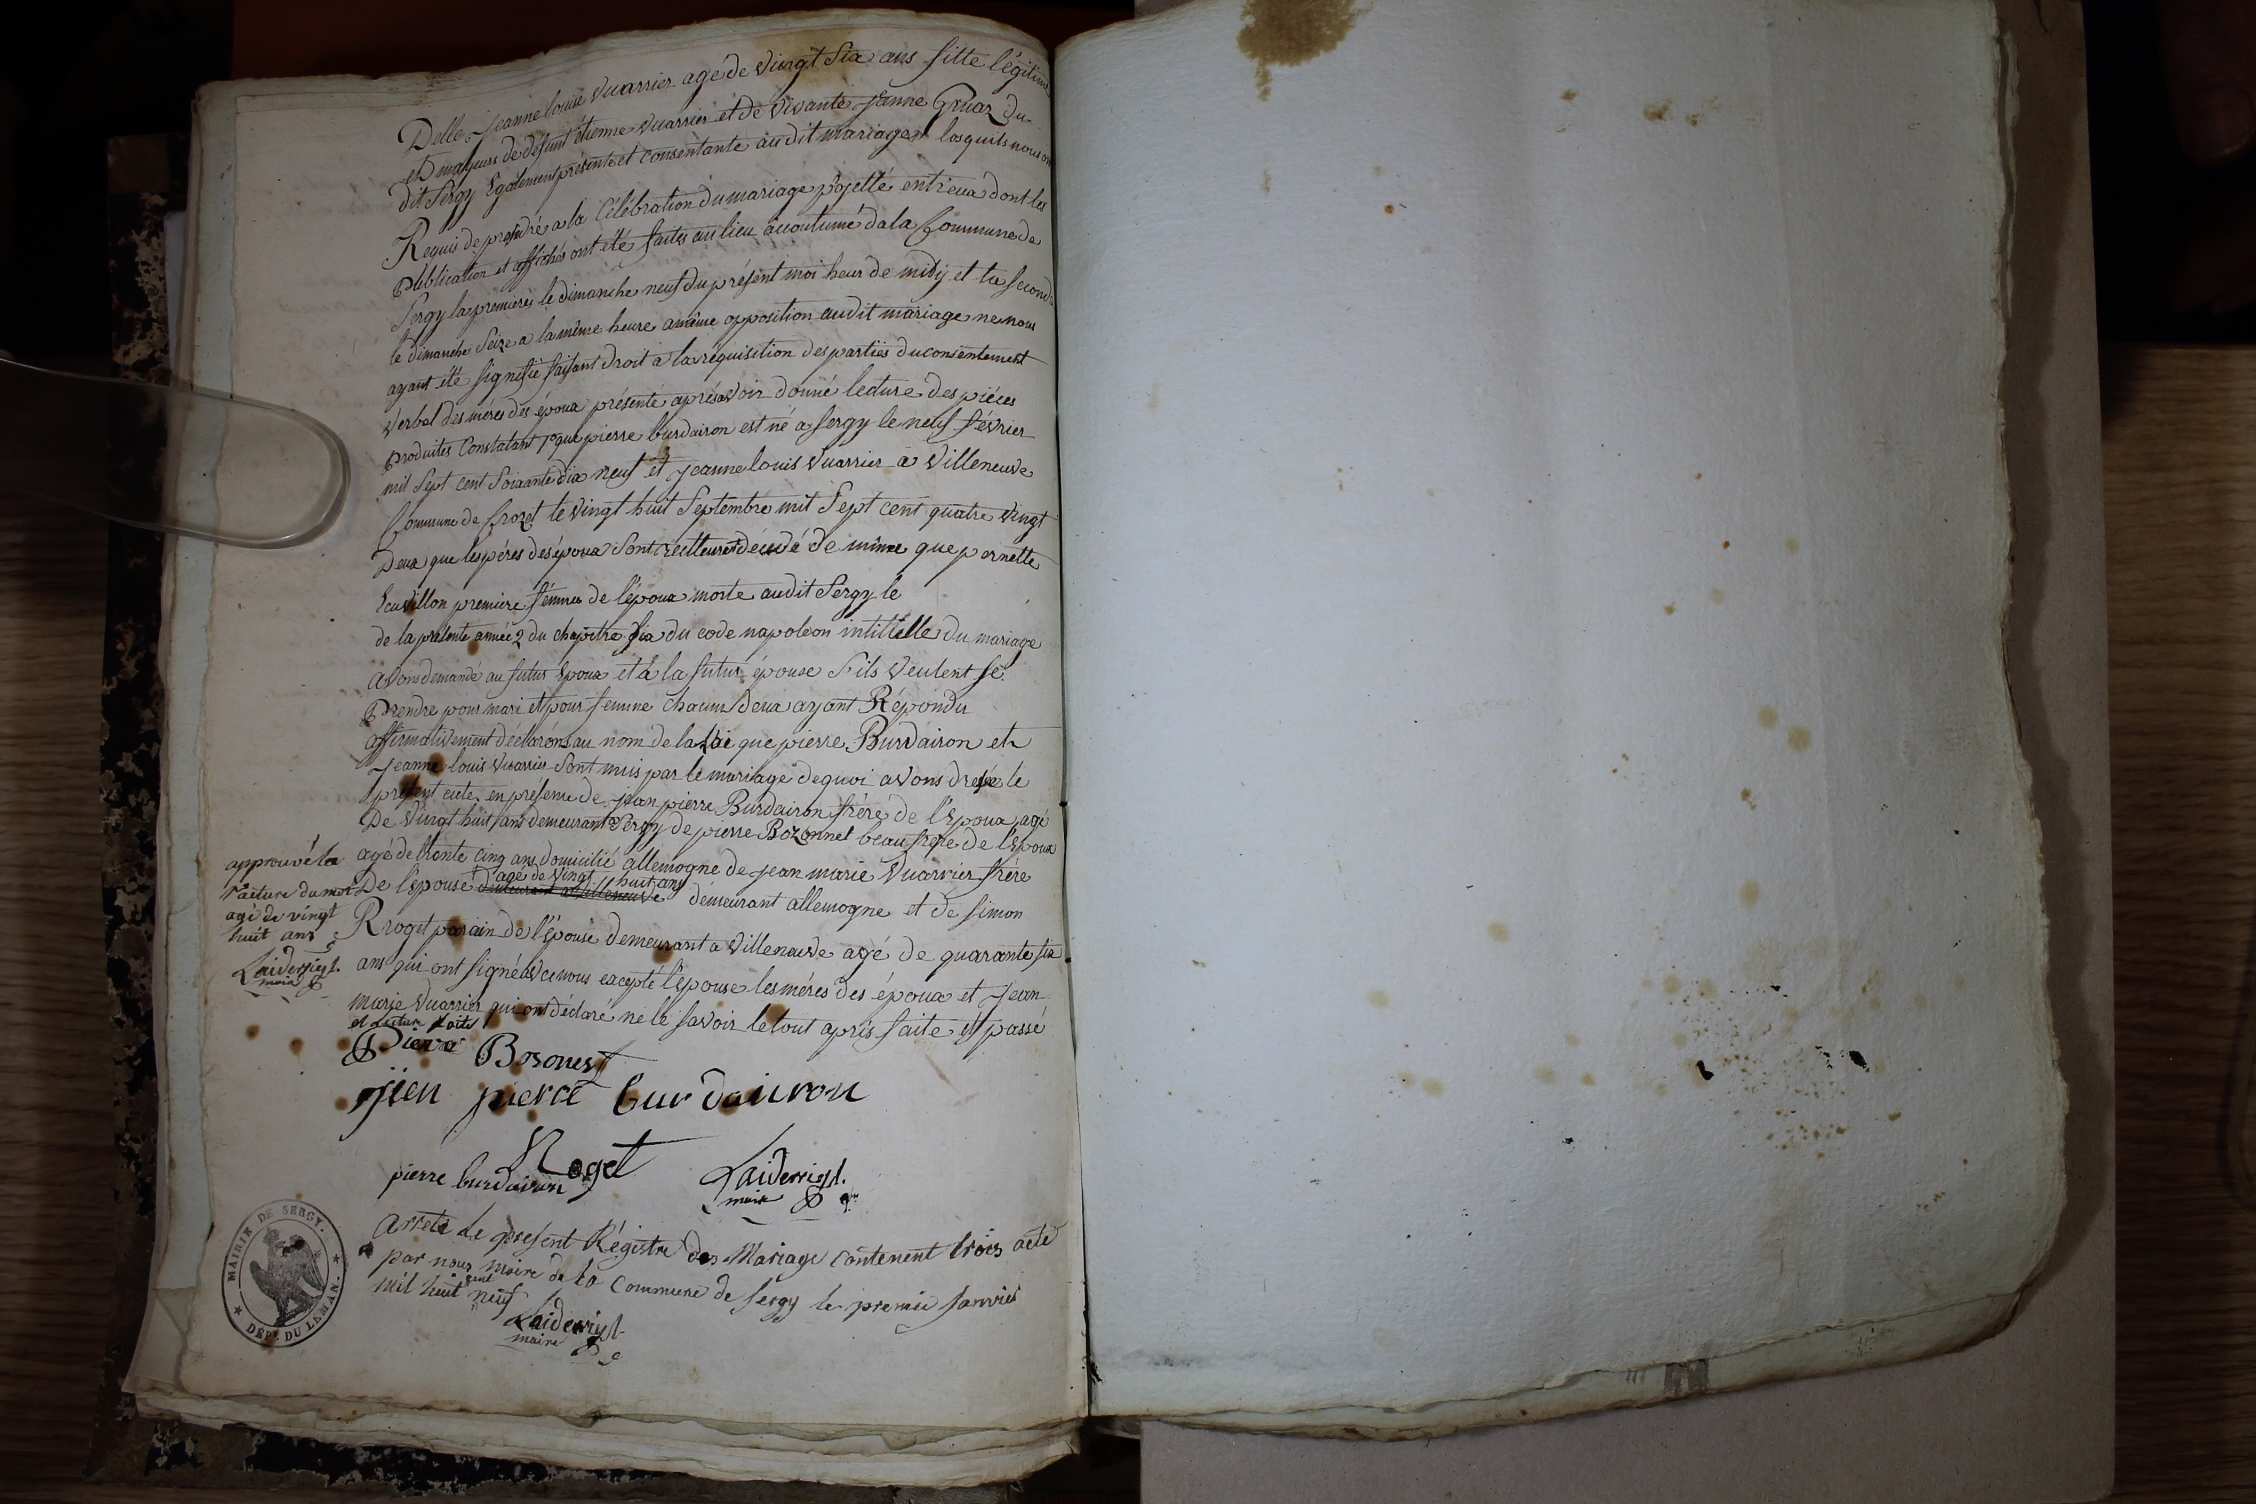 Delle Jeanne louise Vuarrier agé de vingt Six ans fille légitime
et majeurs de défunt étienne Vuarrier et de vivante Janne Gruaz du
dit Sergy Egalement présente et consentante audit mariage losquels nous ont
Requis de procedré a la Célébration du mariage projetté entreux dont les
Publication et affiches ont été faites au lieu acoutumé da la Commune de
Sergy la premieres le dimanche neuf du présent moi heur de midy et la second
le dimanche Seize a la même heure aucune opposition audit mariage ne nous
ayant été signifié faisant droit a la réquisition des parties du consentement
Verbal des méres des époux présenté aprés avoir donné lecture des piéces
produites Constatant 1º que pierre burdairon est né a Sergy le neuf février
mil Sept cent Soixante dix neuf et Jeanne louis Vuarrier a Villeneuve
Commune de Crozet le vingt huit Septembre mil Sept cent quatre vingt
Deux que les péres des époux Sont décédé de même que pernette
Ecuvillon premiere fémme de l'époux morte audit Sergy le
de la présente année 2 du chapitre Six du code napoleon intitelle du mariage
avons demandé au futur époux et à la futur épouse S'ils veulent se
Prendre pour mari et pour femme chacun deux ayant Répondu
affirmativement déclarons au nom de la Loi que pierre Burdairon et
Jeanne louis Vuarrier Sont unis par le mariage de quoi avons dressé le
présent acte en présence de jean pierre Burdairon frére de l'Epoux agé
De vingt huit ans demeurant Sergy de pierre Bozonnet beaufrere de l'Epoux
agé de trente cinq ans domicilié allemogne de jean marie Vuarrier frére
agé de vingt huit ans
De l'épouse demeurant a Villeneuve démeurant allemogne et de Simon
Rroget parain de l'épouse demeurant a Villeneuve agé de quarante six
ans qui ont Signé avec nous excepté l'épouse les méres des époux et Jean
marie Vuarrier qui ont déclaré ne le savoir le tout apris faite et passé
et lecture faite
approuvé la
rature du mot
agé de vingt
huit ans
maire
Pierre Bosonest
jien pierce burdairon
Roget
pierre burdairon
maire
arreté Le present Régistre des Mariage contenent trois acte
par nous maire de la Commune de Sergy le premie Janvier
mil huit cent neuf
maire
MAIRIE DE SERGY.
DEPt. DU LEMAN.